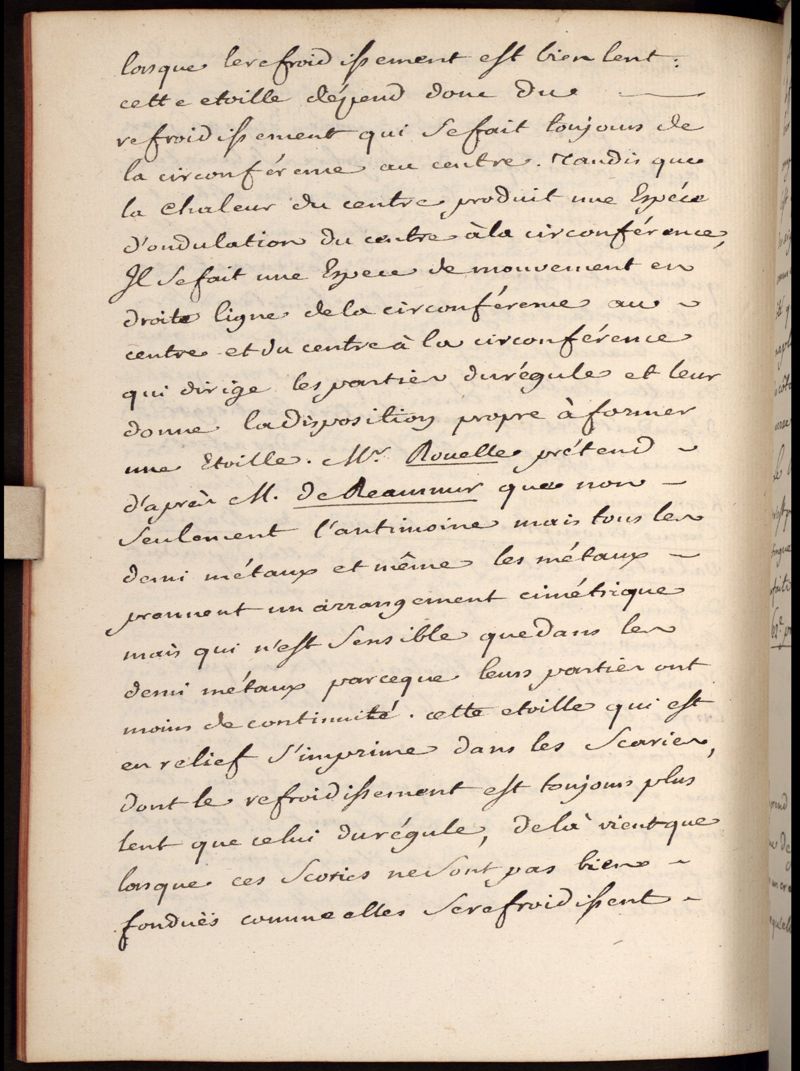 lorsque lerefroidissement est bien lent:
cette etoille dépend donc du
refroidissement qui se fait toujours de
la circonférence au centre. Tandis que
la Chaleur du centre produit une Espéce
d'ondulation du centre àla circonférence,
Il se fait une Espece de mouvement en
droite ligne dela circonférence au
centre et du centre à la circonférence
qui dirige les parties durégule et leur
donne ladisposition propre à former
une Etoille. Mr. Rouelle prétend
d'après M. de Reaumur que non
seulement l'antimoine mais tous les
demi métaux et même les métaux
prennent un arrangement cimétrique
mais qui n'est sensible que dans les
demi métaux parceque leurs parties ont
moins de continuité. cette etoille qui est
en relief s'imprime dans les Scories,
dont le refroidissement est toujours plus
lent que celui durégule, delà vient que
lorsque ces Scories ne sont pas bien
fonduës comme elles se refroidissent